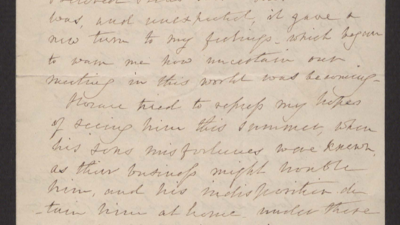 was, and unexpected, it gave a
new turn to my feelings - which began
to warn me how uncertain our
meeting in this world was becoming -
Horace tried to repress my hopes
of seeing him this summer, when
his sons misfortunes were known,
as their business might trouble
him, and his indisposition de
-tain him at home under there